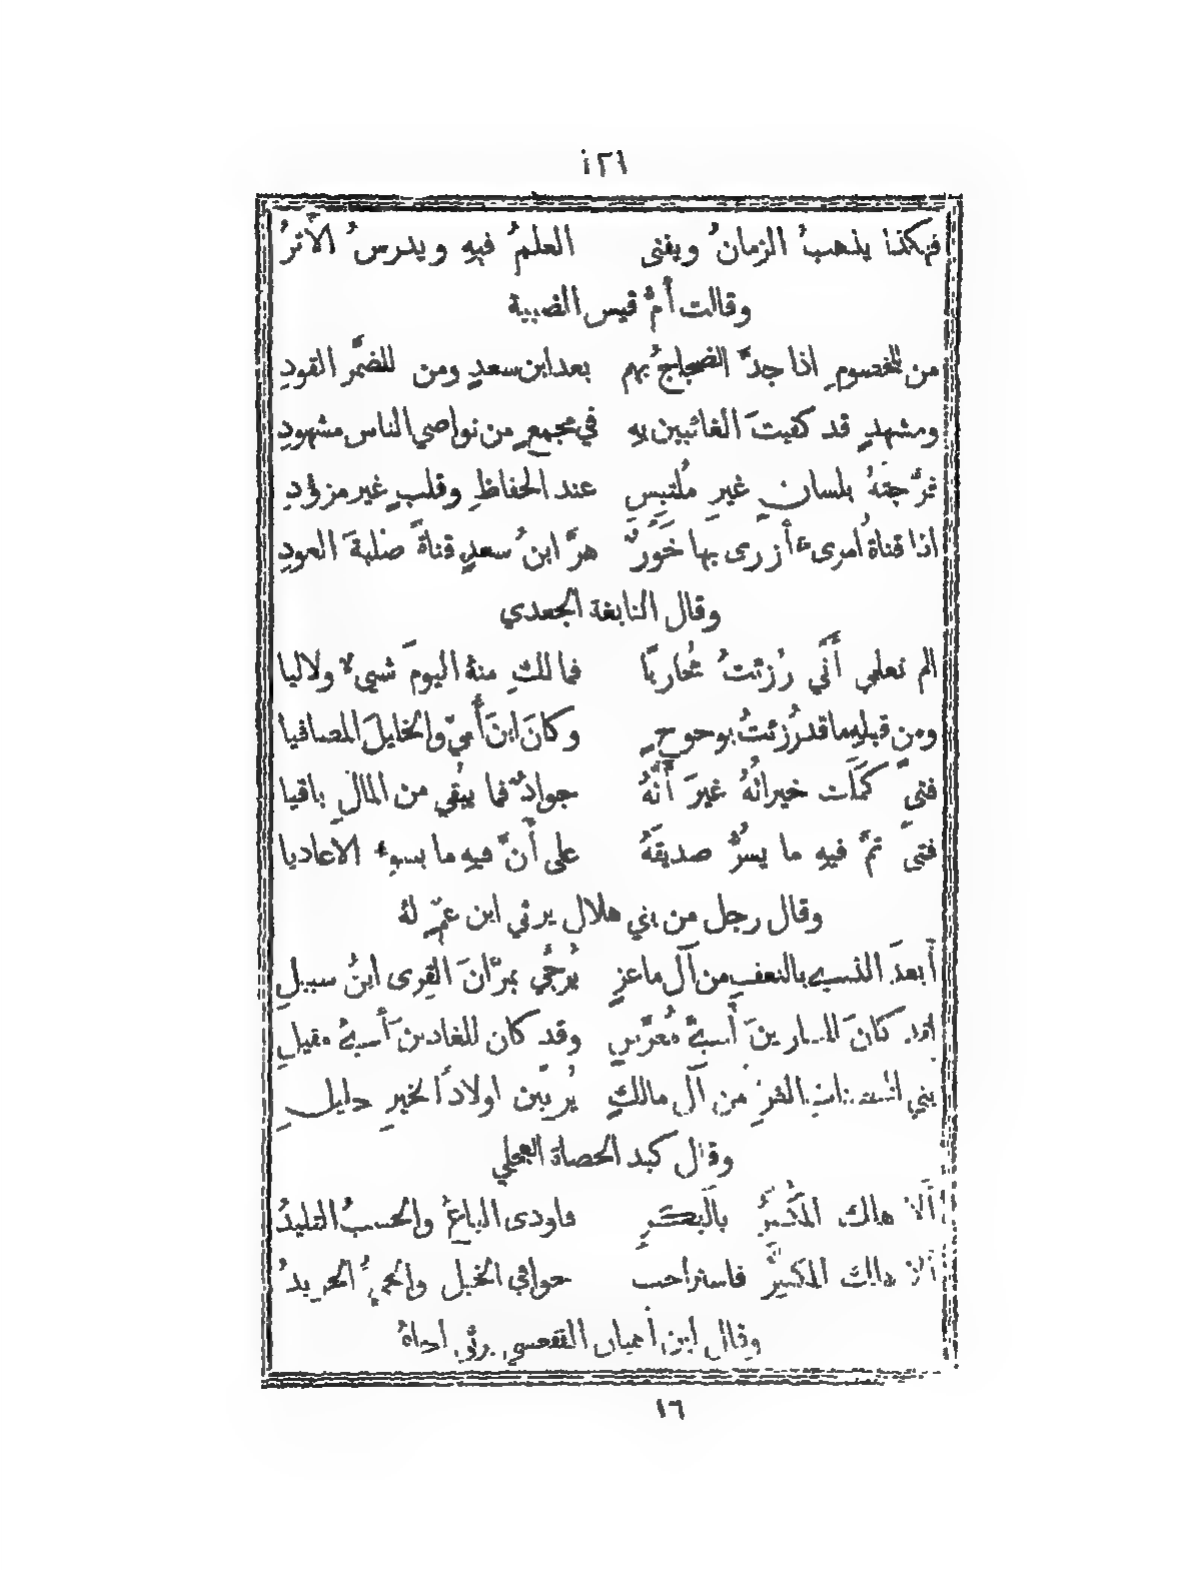 ١٢٦
فهكذا يذهبُ الزمانُ ويفنى العلمُ فيهِ ويدرسُ الأثرُ
وقالت أمُّ قيس الضبية
من للخصومِ اذا جدَّ الضجاجُ بهم بعد ابن سعدٍ ومن للضمَّر القودِ
ومشهدٍ قد كفيتَ الغائبين بهِ في مجمعٍ من نواصي الناس مشهودِ
فرَّجتهُ بلسانٍ غيرِ مُلتبِسٍ عند الحفاظِ وقلبٍ غير مزؤدِ
اذا قناةُ امرىءٍ أزرى بها خَوَرٌ هزَّ ابنُ سعدٍ قناةً صلبةَ العودِ
وقال النابغة الجعدي
الم تعلمي أَنّي رُزئتُ مُحاربًا فما لكِ منهُ اليومَ شيءٌ ولاليا
ومن قبلهِ ما قد رُزئتُ بوحوحٍ وكانَ ابنَ أُمّي والخليلَ المصافيا
فتىً كمَلَت خيراتُهُ غيرَ أَنَّهُ جوادٌ فما يبُقي من المالِ باقيا
فتىً تمَّ فيهِ ما يسرُّ صديقَهُ على أَنَّ فيهِ ما يسوءُ الأعاديا
وقال رجل من بني هلال يرثي ابن عمٍّ لهُ
أَبعدَ الذي بالنعفِ من آل ماعزٍ يُرجَّي بمرَّانَ القِرى ابنُ سبيلِ
لقد كانَ للسارينَ أَيُّ مُعرَّسٍ وقد كان للغادينَ أَيُّ مقيلِ
بني المحصنات الغرّ من آل مالكٍ يُربّين اولادًا لخيرِ حليلِ
وقال كبد الحصاة العجلي
أَلا هلك المُكَسِّرُ يالَبكرٍ فاودى الباعُ والحسبُ التليدُ
أَلا هلك المكسِّرُ فاستراحت حوافي الخيل والحيُّ الحريدُ
وقال ابن أهبان الفقعسي يرثي اخاهُ
١٦